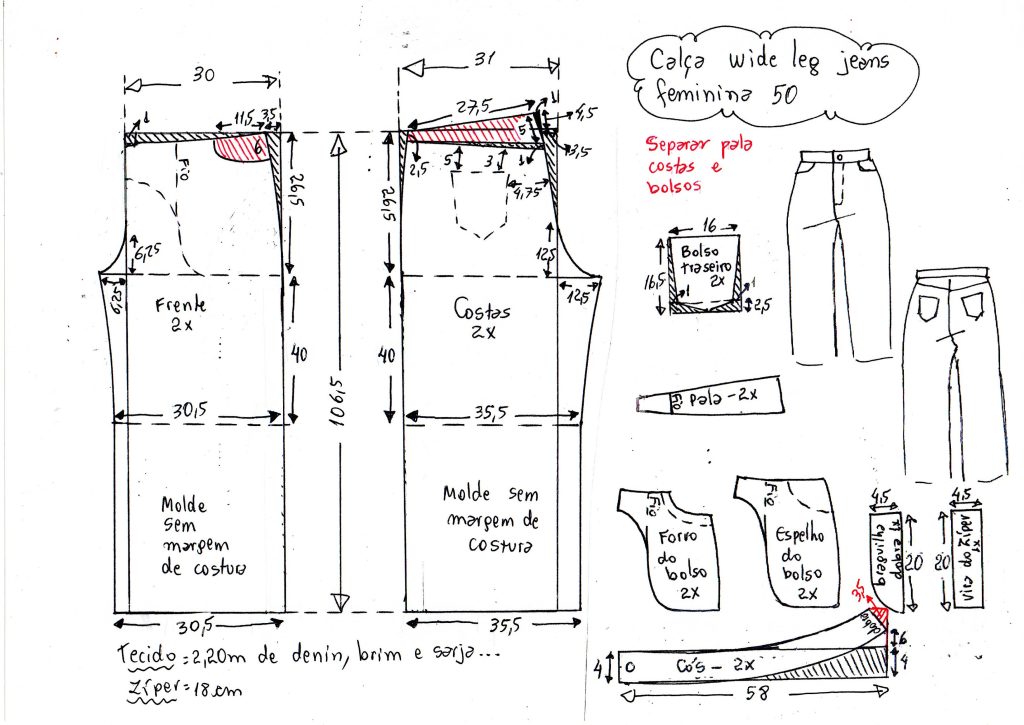 Calça wide leg jeans
feminina 50
Separar pala
costas e
bolsos
30
11,5
3,5
1
6
Fio
26,5
6,25
6,25
Frente
2x
40
30,5
Molde
sem
margem
de costura
30,5
106,5
31
27,5
1
4,5
5
3,5
2,5
5
3
1
4,75
26,5
12,5
12,5
Costas
2x
40
35,5
Molde sem
margem de
costura
35,5
16
Bolso
traseiro
2x
16,5
1
1
2,5
Fio
pala-2x
Fio
Forro
do
bolso
2x
Fio
Espelho
do
bolso
2x
4,5
braguilha
dobra x1
20
4,5
vira zíper
x1
20
3,5
dobra
6
4
4
Cós - 2x
58
Tecido = 2,20m de denin, brim e sarja...
Zíper = 18 cm